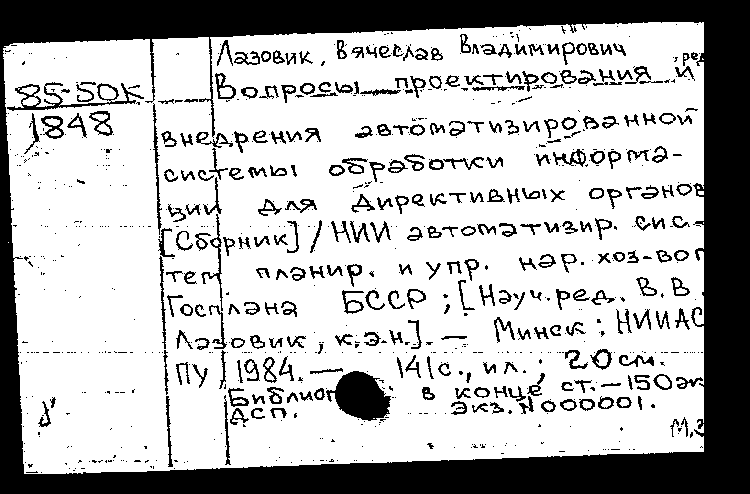 Лазовик, Вячеслав Владимирович
, ред
85-50К Вопросы проектирования и
1848
внедрения автоматизированной
системы обработки информа-
ции для директивных органов
[Сборник] / НИИ автоматизир. сис-
тем планир. и упр. нар. хоз-вом
Госплана БССР ; [Науч. ред. В. В.
Лазовик, к.э.н.]. — Минск : НИИАС
ПУ, 1984. — 141 с., ил. ; 20 см.
Библиог в конце ст. — 150 эк
ДСП. Экз. N 000001.